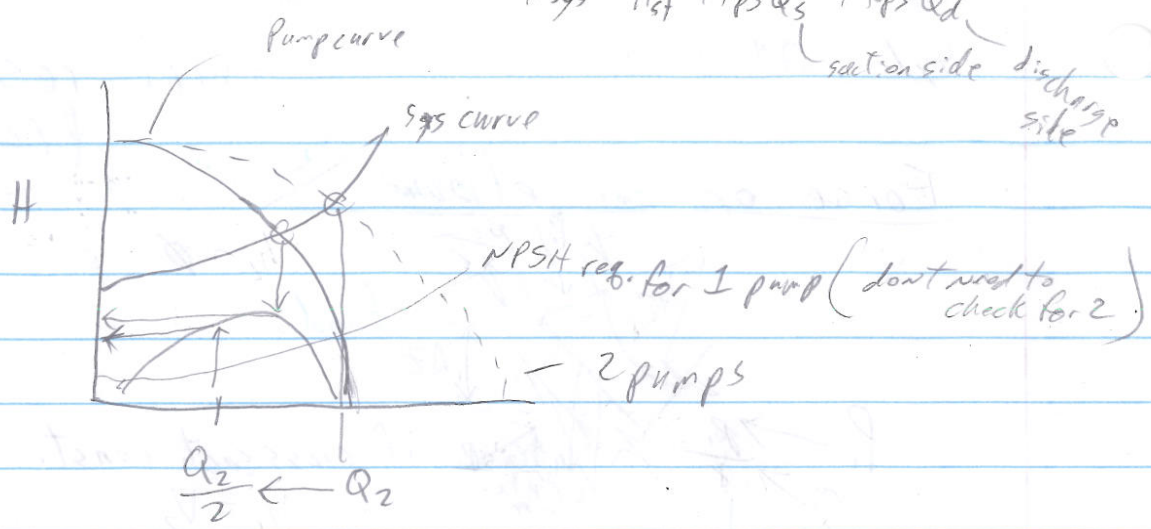 Pump curve
suction side
discharge
side
sys curve
H
NPSH req. for 1 pump (dont need to
check for 2)
2 pumps
Q2
2
Q2